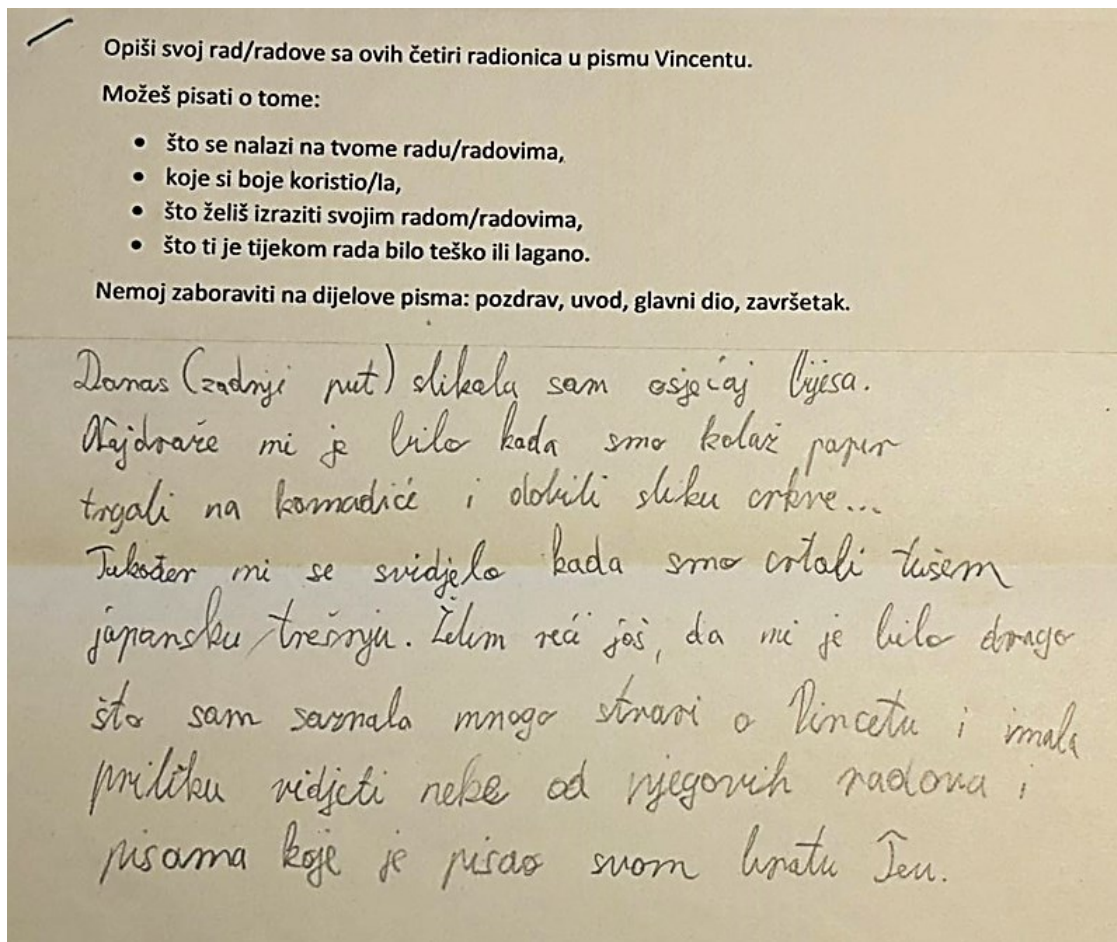 Opiši svoj rad/radove sa ovih četiri radionica u pismu Vincentu.
Možeš pisati o tome:
• što se nalazi na tvome radu/radovima,
• koje si boje koristio/la,
• što želiš izraziti svojim radom/radovima,
• što ti je tijekom rada bilo teško ili lagano.
Nemoj zaboraviti na dijelove pisma: pozdrav, uvod, glavni dio, završetak.
Danas (zadnji put) slikala sam osjećaj bijesa.
Najdraže mi je bilo kada smo kolaž papir
trgali na komadiće i dobili sliku crkve...
Također mi se svidjelo kada smo crtali tušem
japansku trešnju. Želim reći još, da mi je bilo drago
što sam saznala mnogo stvari o Vincetu i imala
priliku vidjeti neke od njegovih radova i
pisama koje je pisao svom bratu Teu.